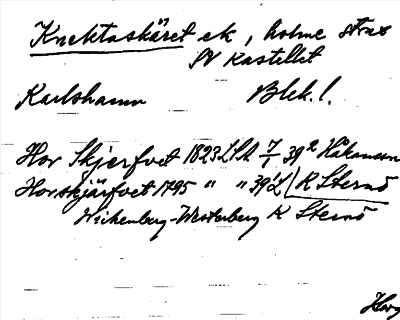 Knektaskäret ek, holme strax
SV Kastellet
Karlshamn Blek. l.
Hor Skjerfvet 1823 LSA 7/1 39² Håkansson
Horskjärfvet 1795 " " 39¹ L K Sternö
Wickenberg-Westerberg K Sternö